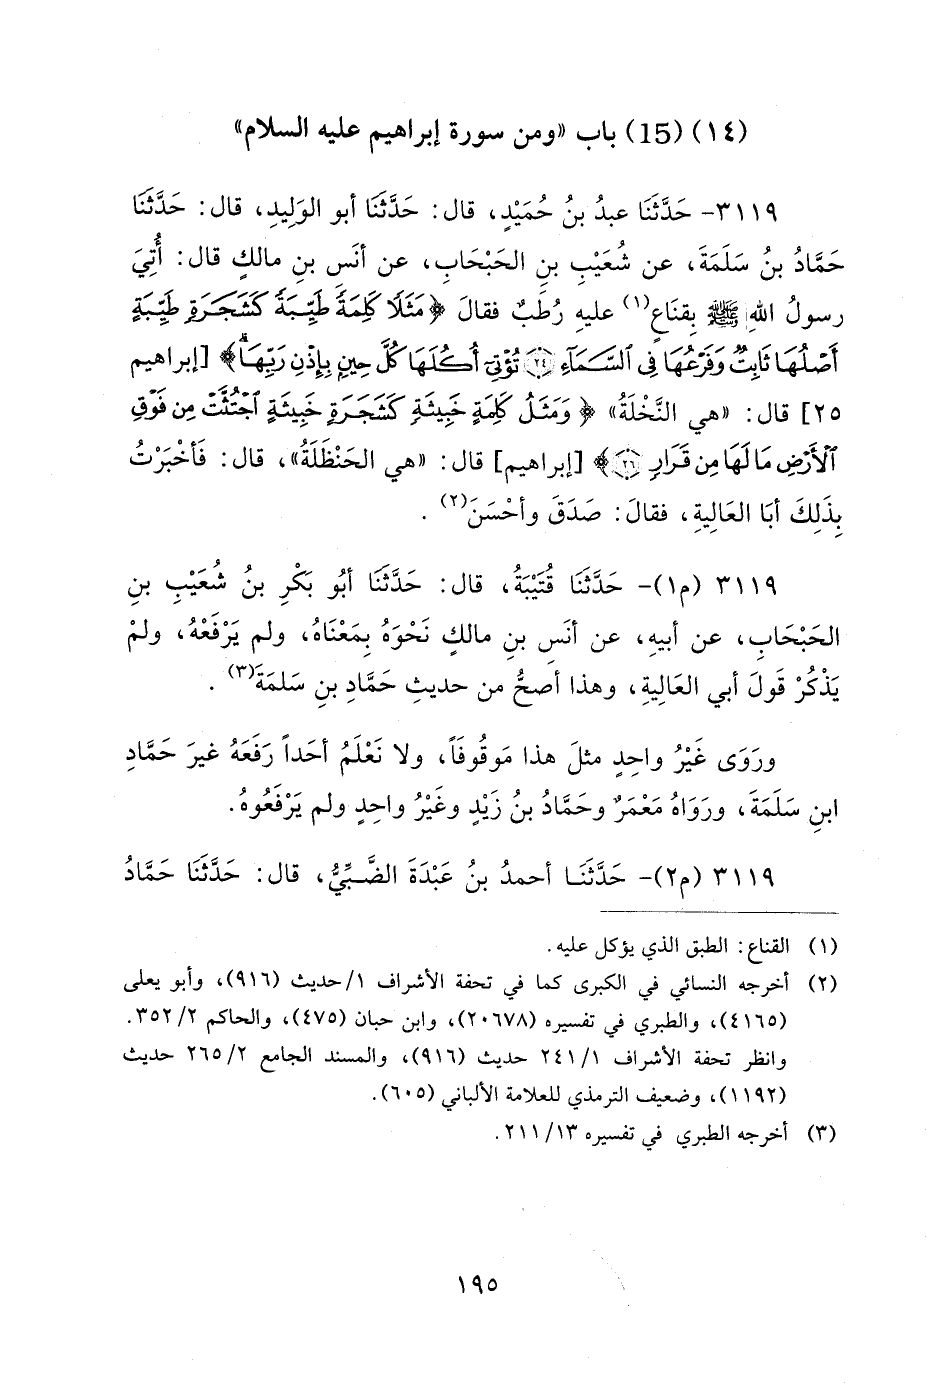 (١٤) (15) باب «ومن سورة إبراهيم عليه السلام»
٣١١٩- حَدَّثَنَا عبدُ بنُ حُمَيْدٍ، قال: حَدَّثَنَا أبو الوَلِيدِ، قال: حَدَّثَنَا
حَمَّادُ بنُ سَلَمَةَ، عن شُعَيْبِ بنِ الحَبْحَابِ، عن أنَسِ بنِ مالكٍ قال: أُتِيَ
رسولُ اللهِ ﷺ بِقنَاعٍ(١) عليهِ رُطَبٌ فقالَ ﴿مَثَلًا كَلِمَةً طَيِّبَةً كَشَجَرَةٍ طَيِّبَةٍ
أَصْلُهَا ثَابِتٌ وَفَرْعُهَا فِي ٱلسَّمَآءِ ﴿٢٤﴾ تُؤْتِيٓ أُكُلَهَا كُلَّ حِينٍۭ بِإِذْنِ رَبِّهَاۗ﴾ [إبراهيم
٢٥] قال: «هي النَّخْلَةُ» ﴿وَمَثَلُ كَلِمَةٍ خَبِيثَةٍ كَشَجَرَةٍ خَبِيثَةٍ ٱجْتُثَّتْ مِن فَوْقِ
ٱلْأَرْضِ مَا لَهَا مِن قَرَارٍ ﴿٢٦﴾﴾ [إبراهيم] قال: «هي الحَنْظَلَةُ»، قال: فَأخْبَرْتُ
بِذَلِكَ أبَا العَالِيةِ، فقالَ: صَدَقَ وأحْسَنَ(٢).
٣١١٩ (م١)- حَدَّثَنَا قُتَيْبَةُ، قال: حَدَّثَنَا أبُو بَكْرِ بنُ شُعَيْبِ بنِ
الحَبْحَابِ، عن أبيهِ، عن أنَسِ بنِ مالكٍ نَحْوَهُ بِمَعْنَاهُ، ولم يَرْفَعْهُ، ولمْ
يَذْكُرْ قَولَ أبي العَالِيةِ، وهذا أصحُّ من حديثِ حَمَّادِ بنِ سَلَمَةَ(٣).
ورَوَى غَيْرُ واحِدٍ مثلَ هذا مَوقُوفَاً، ولا نَعْلَمُ أحَداً رَفَعَهُ غيرَ حَمَّادِ
ابنِ سَلَمَةَ، ورَوَاهُ مَعْمَرٌ وحَمَّادُ بنُ زَيْدٍ وغَيْرُ واحِدٍ ولم يَرْفَعُوهُ.
٣١١٩ (م٢)- حَدَّثَنَا أحمدُ بنُ عَبْدَةَ الضَّبِّيُّ، قال: حَدَّثَنَا حَمَّادُ
(١) القناع: الطبق الذي يؤكل عليه.
(٢) أخرجه النسائي في الكبرى كما في تحفة الأشراف ١/حديث (٩١٦)، وأبو يعلى
(٤١٦٥)، والطبري في تفسيره (٢٠٦٧٨)، وابن حبان (٤٧٥)، والحاكم ٢/ ٣٥٢.
وانظر تحفة الأشراف ١/ ٢٤١ حديث (٩١٦)، والمسند الجامع ٢/ ٢٦٥ حديث
(١١٩٢)، وضعيف الترمذي للعلامة الألباني (٦٠٥).
(٣) أخرجه الطبري في تفسيره ١٣/ ٢١١.
١٩٥